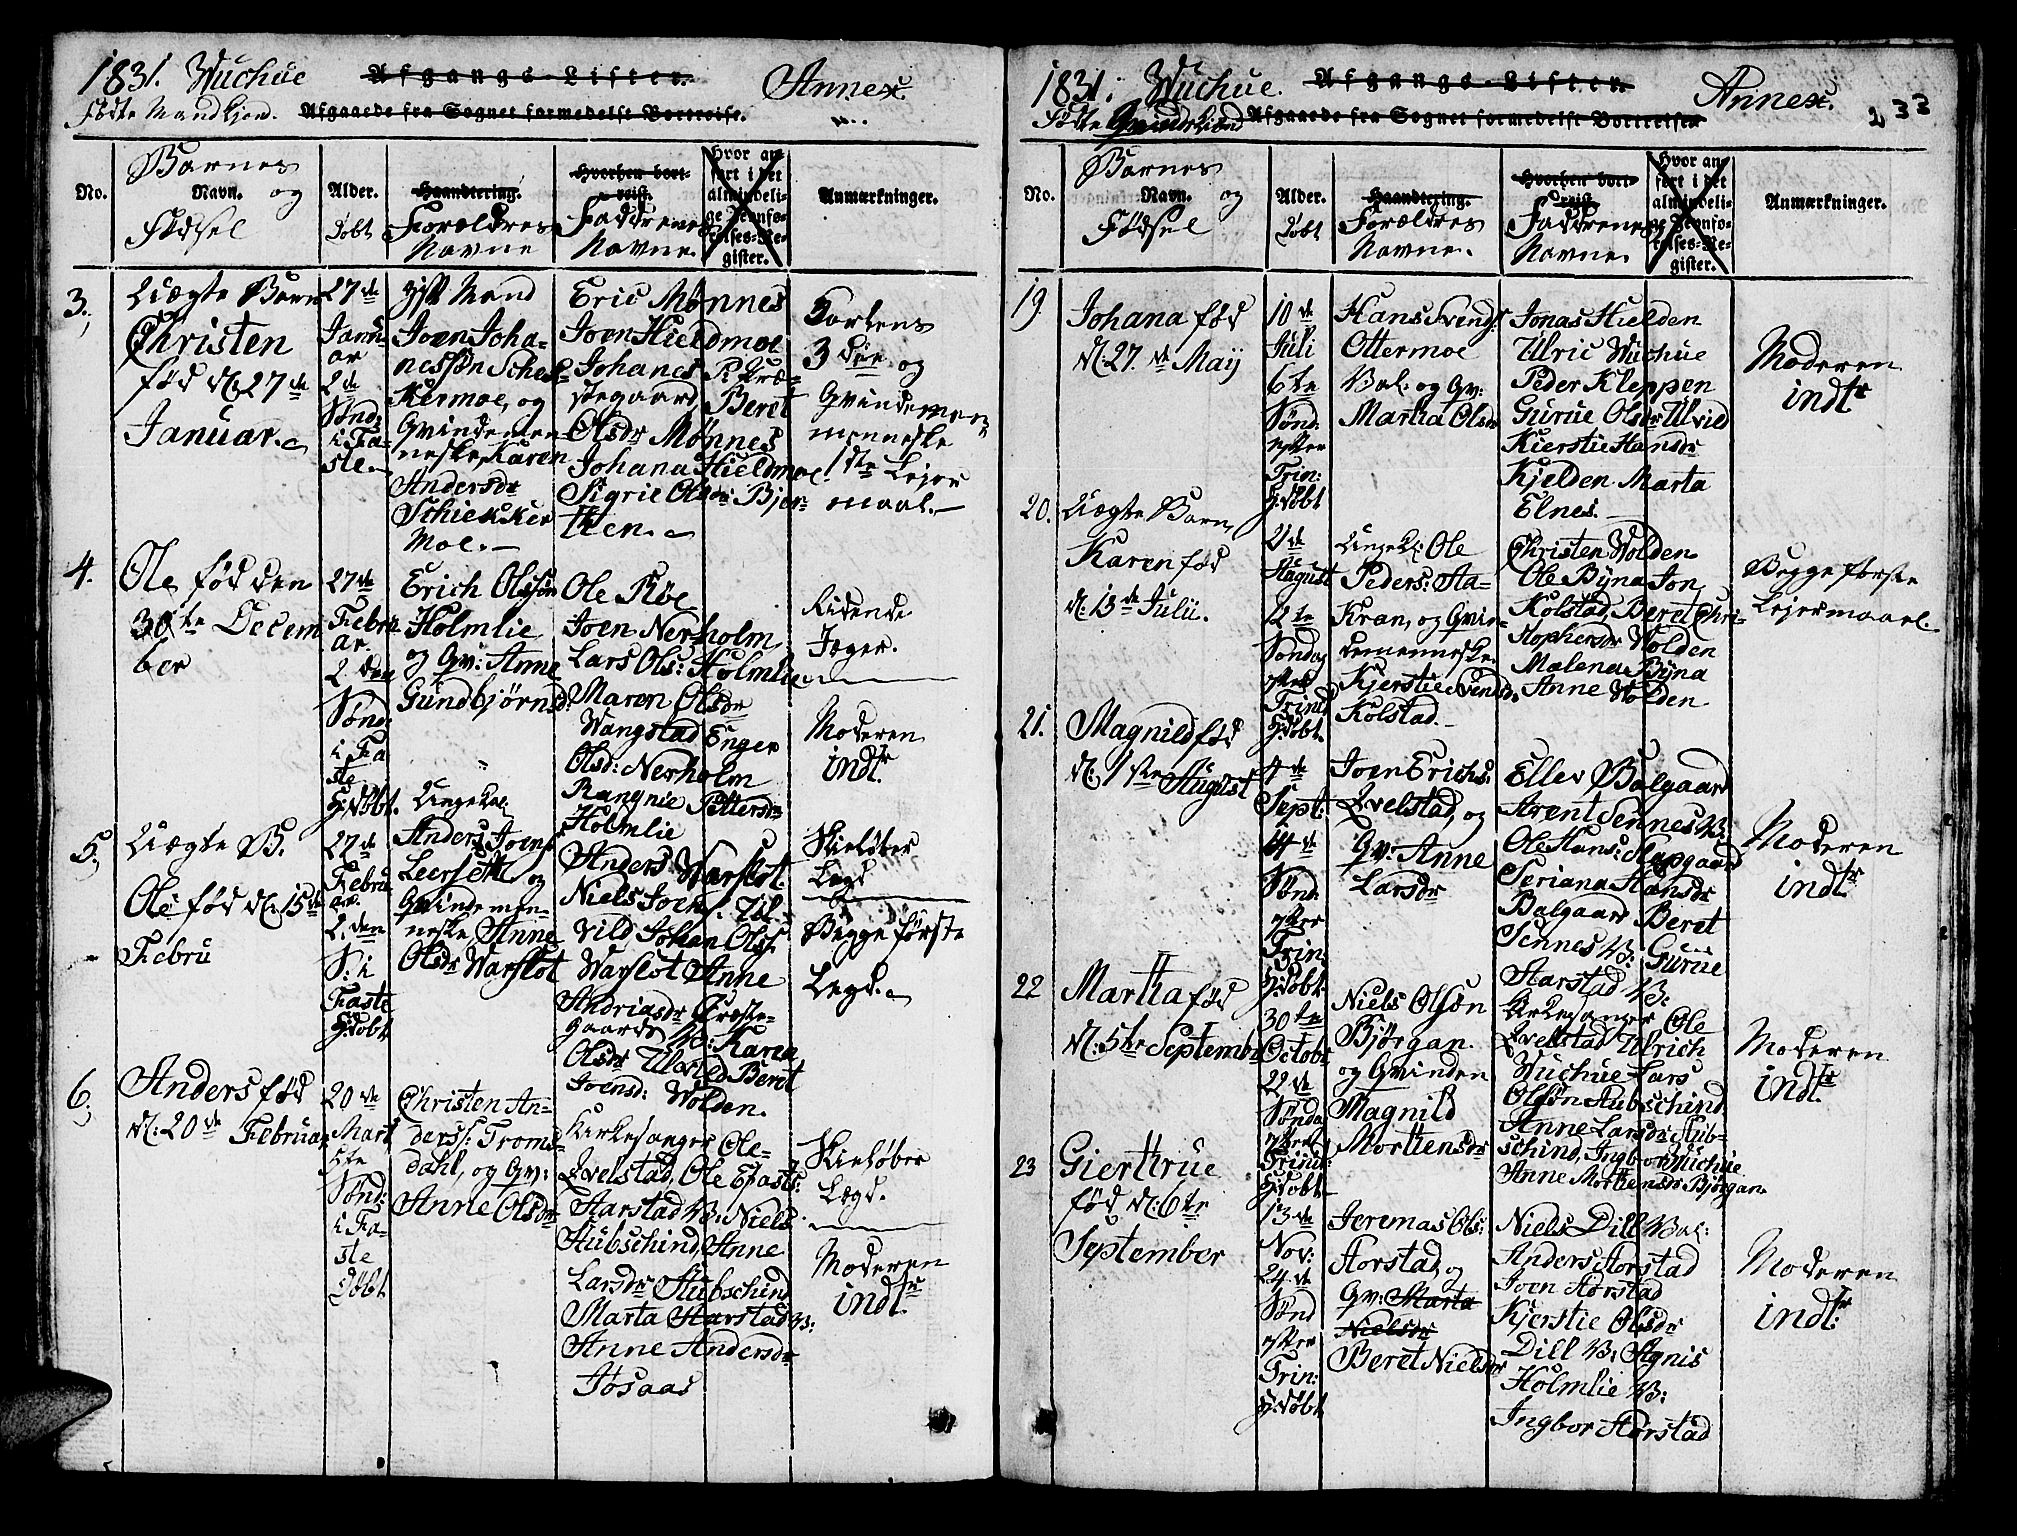 1831. Wuchue Afgangs-Lister. Annex.
Födte Mandkjön. Afgaaede fra Sognet formedelst Bortreise.
No.
Barnes
Navn. og
Födsel
Alder.
Döbt
Haandtering.
Forældres
Navne
Hvorhen bortreist.
Faddrenes
Navne.
Hvor anført i det almindelige Jevnførelses-Register.
Anmærkninger.
3.
Uægte Barn
Christen
föd d: 27de
Januar.
27de
Janu-
ar
2de
Sönd:
i Fa-
ste
Joen Joha-
nessön
Kermoe, og
Qvindemen-
neske, Karen
Andersdr
Schiekker
Moe.
Eric Mønnes
Joen Hieldmoe
Johanes Præ-
stegaard, Beret
Olsdr Mønnes
Johana Hieldmoe
Sigrie Olsdr Bjer-
then.
3die og
Qvindemen
menneske
1ste Lejer
maal.
4.
Ole föd den
30te Decem
ber
27de
Febru
ar.
2den
Sönd:
i Fa
ste
Hj:döbt.
Erich Olssön
Holmlie
og Qv: Anne
Gundbjørnsd:
Ole Røe
Joen Nerholm
Lars Ols: Holmlie
Maren Olsdr
Wangstad Enger
Olsd: Nerholm
Rangnie Pettersdr
Holmlie
Ridende
Jæger.
Moderen
indtr
5.
Uægte B.
Ole föd d: 15de
Febru
27de
Febru
ar.
2den
S: i
Faste
Hj:döbt
Ungekal:
Anders Joens:
Leerseth og
Qvindemen-
neske Anne
Olsdr Warslot
Anders Warslot.
Niels Joens: Ul-
vild Johan Olss:
Warslot Anne
Andriasdr Præste-
gaards W: Karen
Olsdr Ulvild Beret
Joensd: Wolden.
Skieløber
Legd
Begge første
Legd.
6.
Anders föd
d: 20de Februar
20de
Mart
5te
Sönd:
i Fa-
ste
Döbt
Christen An-
derss: Troms-
dahl, og Qv:
Anne Olsdr
Kirkesanger Ole
Qvelstad, Ole Efasts:
Harstad W: Niels
Hubschind, Anne
Larsdr Stubschind
Marta Harstad W:
Anne Andersdr
Josaas
Skieløber
Lægd.
Moderen
indtr
1831. Wuchue. Afgangs-Lister. Annex.
233
Födte Qvindekiönd Afgaaede fra Sognet formedelst Bortreise
No.
Barnes
Navn. og
Födsel
Alder.
Döbt
Haandtering.
Forældres
Navne.
Hvorhen bortreist.
Faddrenes
Navne.
Hvor anført i det almindelige Jevnførelses-Register.
Anmærkninger.
19
Johana föd
d: 27de Maij
10de
Juli
6te
Sönd:
efter
Trin:
Hj:döbt
Hans Svends:
Ottermoe
Bal: og Qv:
Martha Olsdr
Jonas Hielden
Ulric Wuchue
Peder Kleppen
Gurue Olsdr Ulvild
Kierstie Hansdr
Kjelden Marta
Elnes.
Moderen
indtr
20.
Uægte Barn
Karen föd
d: 13de Julii.
21de
August
12te
Søndag
efter
Trinit
Hj:döbt.
Ungek: Ole
Peders: Aa-
Kran, og Qvin-
demenneske
Kjerstie Svendsdr
Kolstad.
Christen Wolden
Ole Byna Jon
Kolstad, Beret Chri-
stophersdr Wolden
Malena Byna
Anne Wolden
Begge første
Lejermaal
21.
Magnild föd
d: 1ste August
4de
Sept:
14de
Sönd:
efter
Trin
Hj:döbt
Joen Erichs:
Qvelstad, og
Qv: Anne
Larsdr
Ellev Balgaard
Arent Sennes W:
Ole Hans: Slapgaard
Seriana Hansdr
Balgaard Beret
Sennes W: Gurue
Harstad W:
Moderen
indtr
22
Martha föd
d: 5te September
30te
Octobr
22de
Søndag
efter
Trinit:
Hj:döbt
Niels Olsön
Bjørgan.
og Qvinden
Magnild
Morthensdr
Kirkesanger Ole
Qvelstad Ulrich
Wuchue Lars
Olsön Aubschind
Anne Larsdr Stub-
schind, Ingbor Wuchue
Anne Morthensdr Bjørgan.
Moderen
indtr.
23
Gierthrue
föd d: 6te
September
13de
Nov:
24de
Sönd
efter
Trin:
Hj:döbt
Jeremas Ols:
Storstad, og
Qv: Marta
Nielsdr
Beret Nielsdr
Niels Dill Bal:
Anders Storstad
Joen Storstad
Kjerstie Olsdr
Dill W: Agnis
Holmlie W:
Ingbor Storstad
Moderen
indtr: